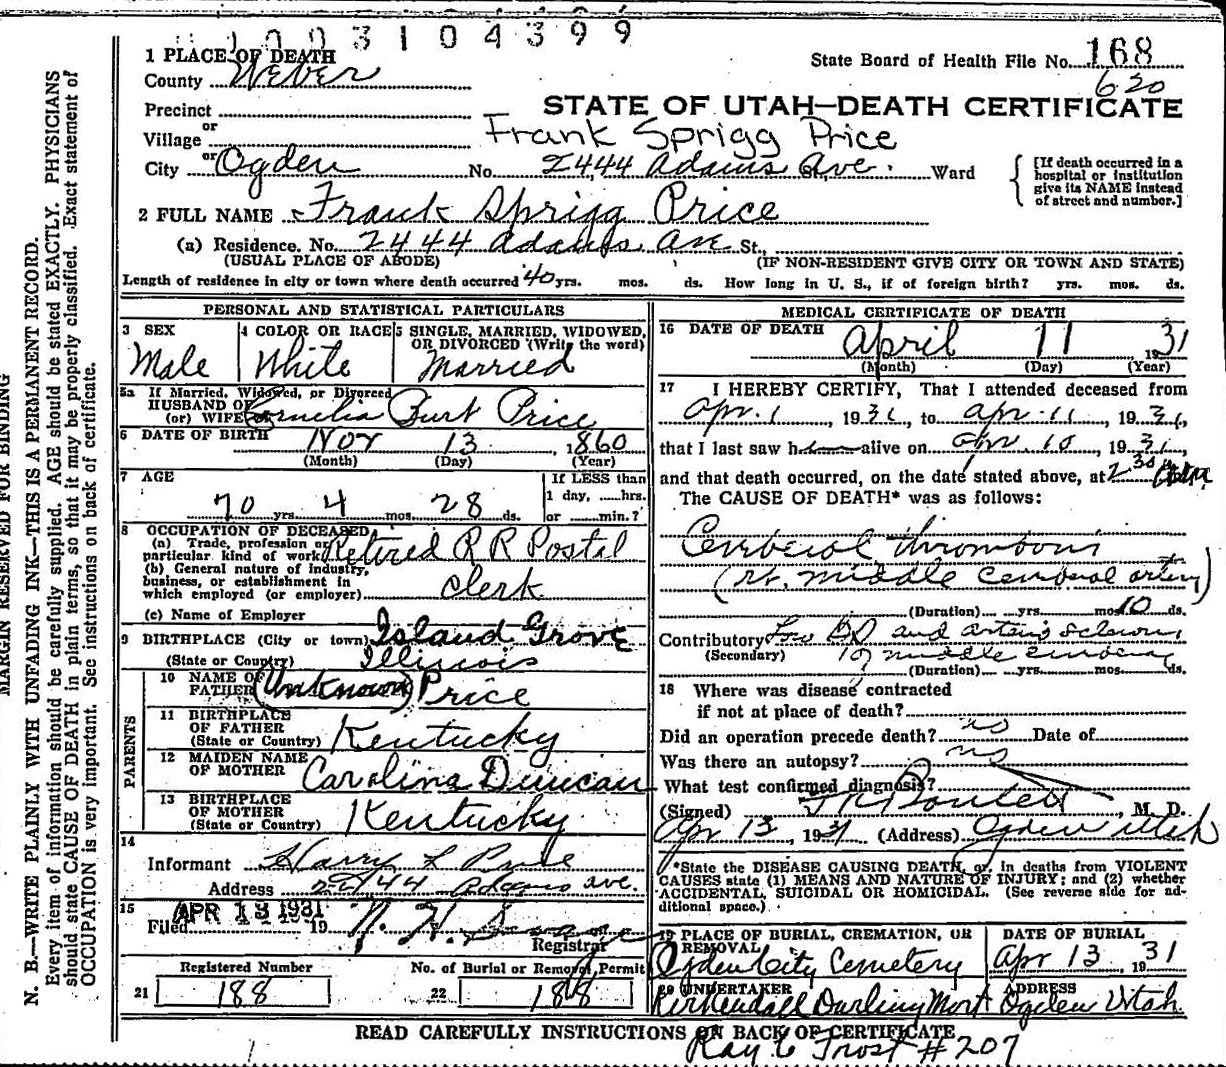 1003104399
1 PLACE OF DEATH
State Board of Health File No. 168
County Weber
620
Precinct
STATE OF UTAH—DEATH CERTIFICATE
or
Village
Frank Sprigg Price
City or Ogden No. 2444 Adams Ave. Ward
[If death occurred in a
hospital or institution
give its NAME instead
of street and number.]
2 FULL NAME Frank Sprigg Price
(a) Residence. No. 2444 Adams Ave St.,
(USUAL PLACE OF ABODE) (IF NON-RESIDENT GIVE CITY OR TOWN AND STATE)
Length of residence in city or town where death occurred 40 yrs. mos. ds. How long in U. S., if of foreign birth? yrs. mos. ds.
PERSONAL AND STATISTICAL PARTICULARS
3 SEX
Male
4 COLOR OR RACE
White
5 SINGLE, MARRIED, WIDOWED,
OR DIVORCED (Write the word)
Married
5a If Married, Widowed, or Divorced
HUSBAND OF
(or) WIFE Cornelia Burt Price
6 DATE OF BIRTH Nov 13, 1860
(Month) (Day) (Year)
7 AGE
70 yrs. 4 mos. 28 ds.
If LESS than
1 day, ......hrs.
or ......min.?
8 OCCUPATION OF DECEASED
(a) Trade, profession or
particular kind of work Retired R R Postal
(b) General nature of industry,
business, or establishment in
which employed (or employer) Clerk
(c) Name of Employer
9 BIRTHPLACE (City or town) Island Grove
(State or Country) Illinois
PARENTS
10 NAME OF
FATHER (Unknown) Price
11 BIRTHPLACE
OF FATHER
(State or Country) Kentucky
12 MAIDEN NAME
OF MOTHER Carolina Duncan
13 BIRTHPLACE
OF MOTHER
(State or Country) Kentucky
14
Informant Harry L Price
Address 2444 Adams ave.
15 APR 13 1931
Filed 19
Registrar
Registered Number
21 188
No. of Burial or Removal Permit
22 188
MEDICAL CERTIFICATE OF DEATH
16 DATE OF DEATH
April 11, 1931
(Month) (Day) (Year)
17 I HEREBY CERTIFY, That I attended deceased from
Apr. 1, 1931, to Apr. 11, 1931,
that I last saw h alive on Apr. 10, 1931,
and that death occurred, on the date stated above, at 2 30 m
The CAUSE OF DEATH* was as follows:
Cerberal thrombosis
(rt. middle Cerberal artery)
(Duration) yrs. mos. 10 ds.
Contributory Low BP and arterio sclerosis
(Secondary) of middle
(Duration) yrs. mos. ds.
18 Where was disease contracted
if not at place of death?
Did an operation precede death? no Date of
Was there an autopsy? no
What test confirmed diagnosis?
(Signed) , M. D.
Apr 13, 1931 (Address) Ogden Utah
*State the DISEASE CAUSING DEATH, or, in deaths from VIOLENT
CAUSES state (1) MEANS AND NATURE OF INJURY; and (2) whether
ACCIDENTAL, SUICIDAL OR HOMICIDAL. (See reverse side for ad-
ditional space.)
19 PLACE OF BURIAL, CREMATION, OR
REMOVAL
Ogden City Cemetery
DATE OF BURIAL
Apr 13, 1931
20 UNDERTAKER
Kirkendall Darling Mort
ADDRESS
Ogden Utah.
READ CAREFULLY INSTRUCTIONS ON BACK OF CERTIFICATE
Ray C Frost #207
MARGIN RESERVED FOR BINDING
N. B.—WRITE PLAINLY WITH UNFADING INK—THIS IS A PERMANENT RECORD.
Every item of information should be carefully supplied. AGE should be stated EXACTLY. PHYSICIANS
should state CAUSE OF DEATH in plain terms, so that it may be properly classified. Exact statement of
OCCUPATION is very important. See instructions on back of certificate.